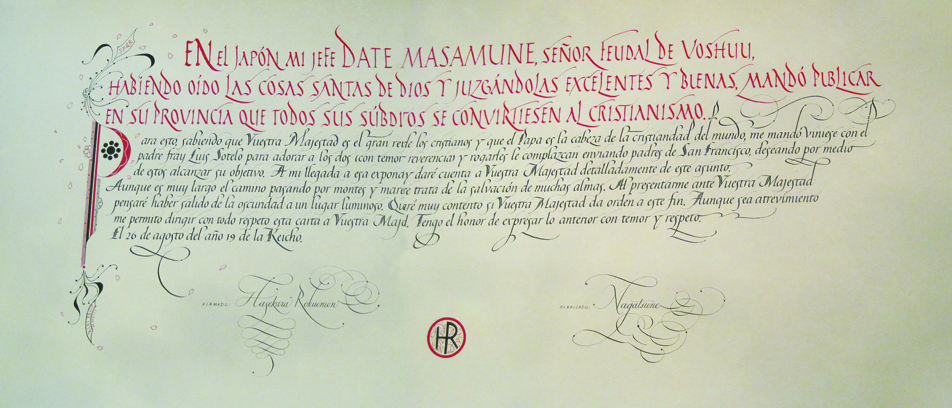 EN EL JAPÓN MI JEFE DATE MASAMUNE, SEÑOR FEUDAL DE VOSHUU,
HABIENDO OÍDO LAS COSAS SANTAS DE DIOS Y JUZGÁNDOLAS EXCELENTES Y BUENAS, MANDÓ PUBLICAR
EN SU PROVINCIA QUE TODOS SUS SÚBDITOS SE CONVIRTIESEN AL CRISTIANISMO.
Para esto, sabiendo que Vuestra Majestad es el gran rey de los cristianos y que el Papa es la cabeza de la cristiandad del mundo, me mandó viniese con el
padre fray Luis Sotelo para adorar a los dos con temor reverencia y rogarles le complazcan enviando padres de San Francisco, deseando por medio
de estos alcanzar su objetivo. A mi llegada a esa exponay daré cuenta a Vuestra Majestad detalladamente de este asunto.
Aunque es muy largo el camino pasando por montes y mar se trata de la salvación de muchas almas. Al presentarme ante Vuestra Majestad
pensaré haber salido de la oscuridad a un lugar luminoso. Quedaré muy contento si Vuestra Majestad da orden a este fin. Aunque sea atrevimiento
me permito dirigir con todo respeto esta carta a Vuestra Majd. Tengo el honor de expresar lo anterior con temor y respeto.
El 26 de agosto del año 19 de la Keicho.
FIRMADO: Hasekura Rokuemon
RUBRICADO: Nagatsune
HR